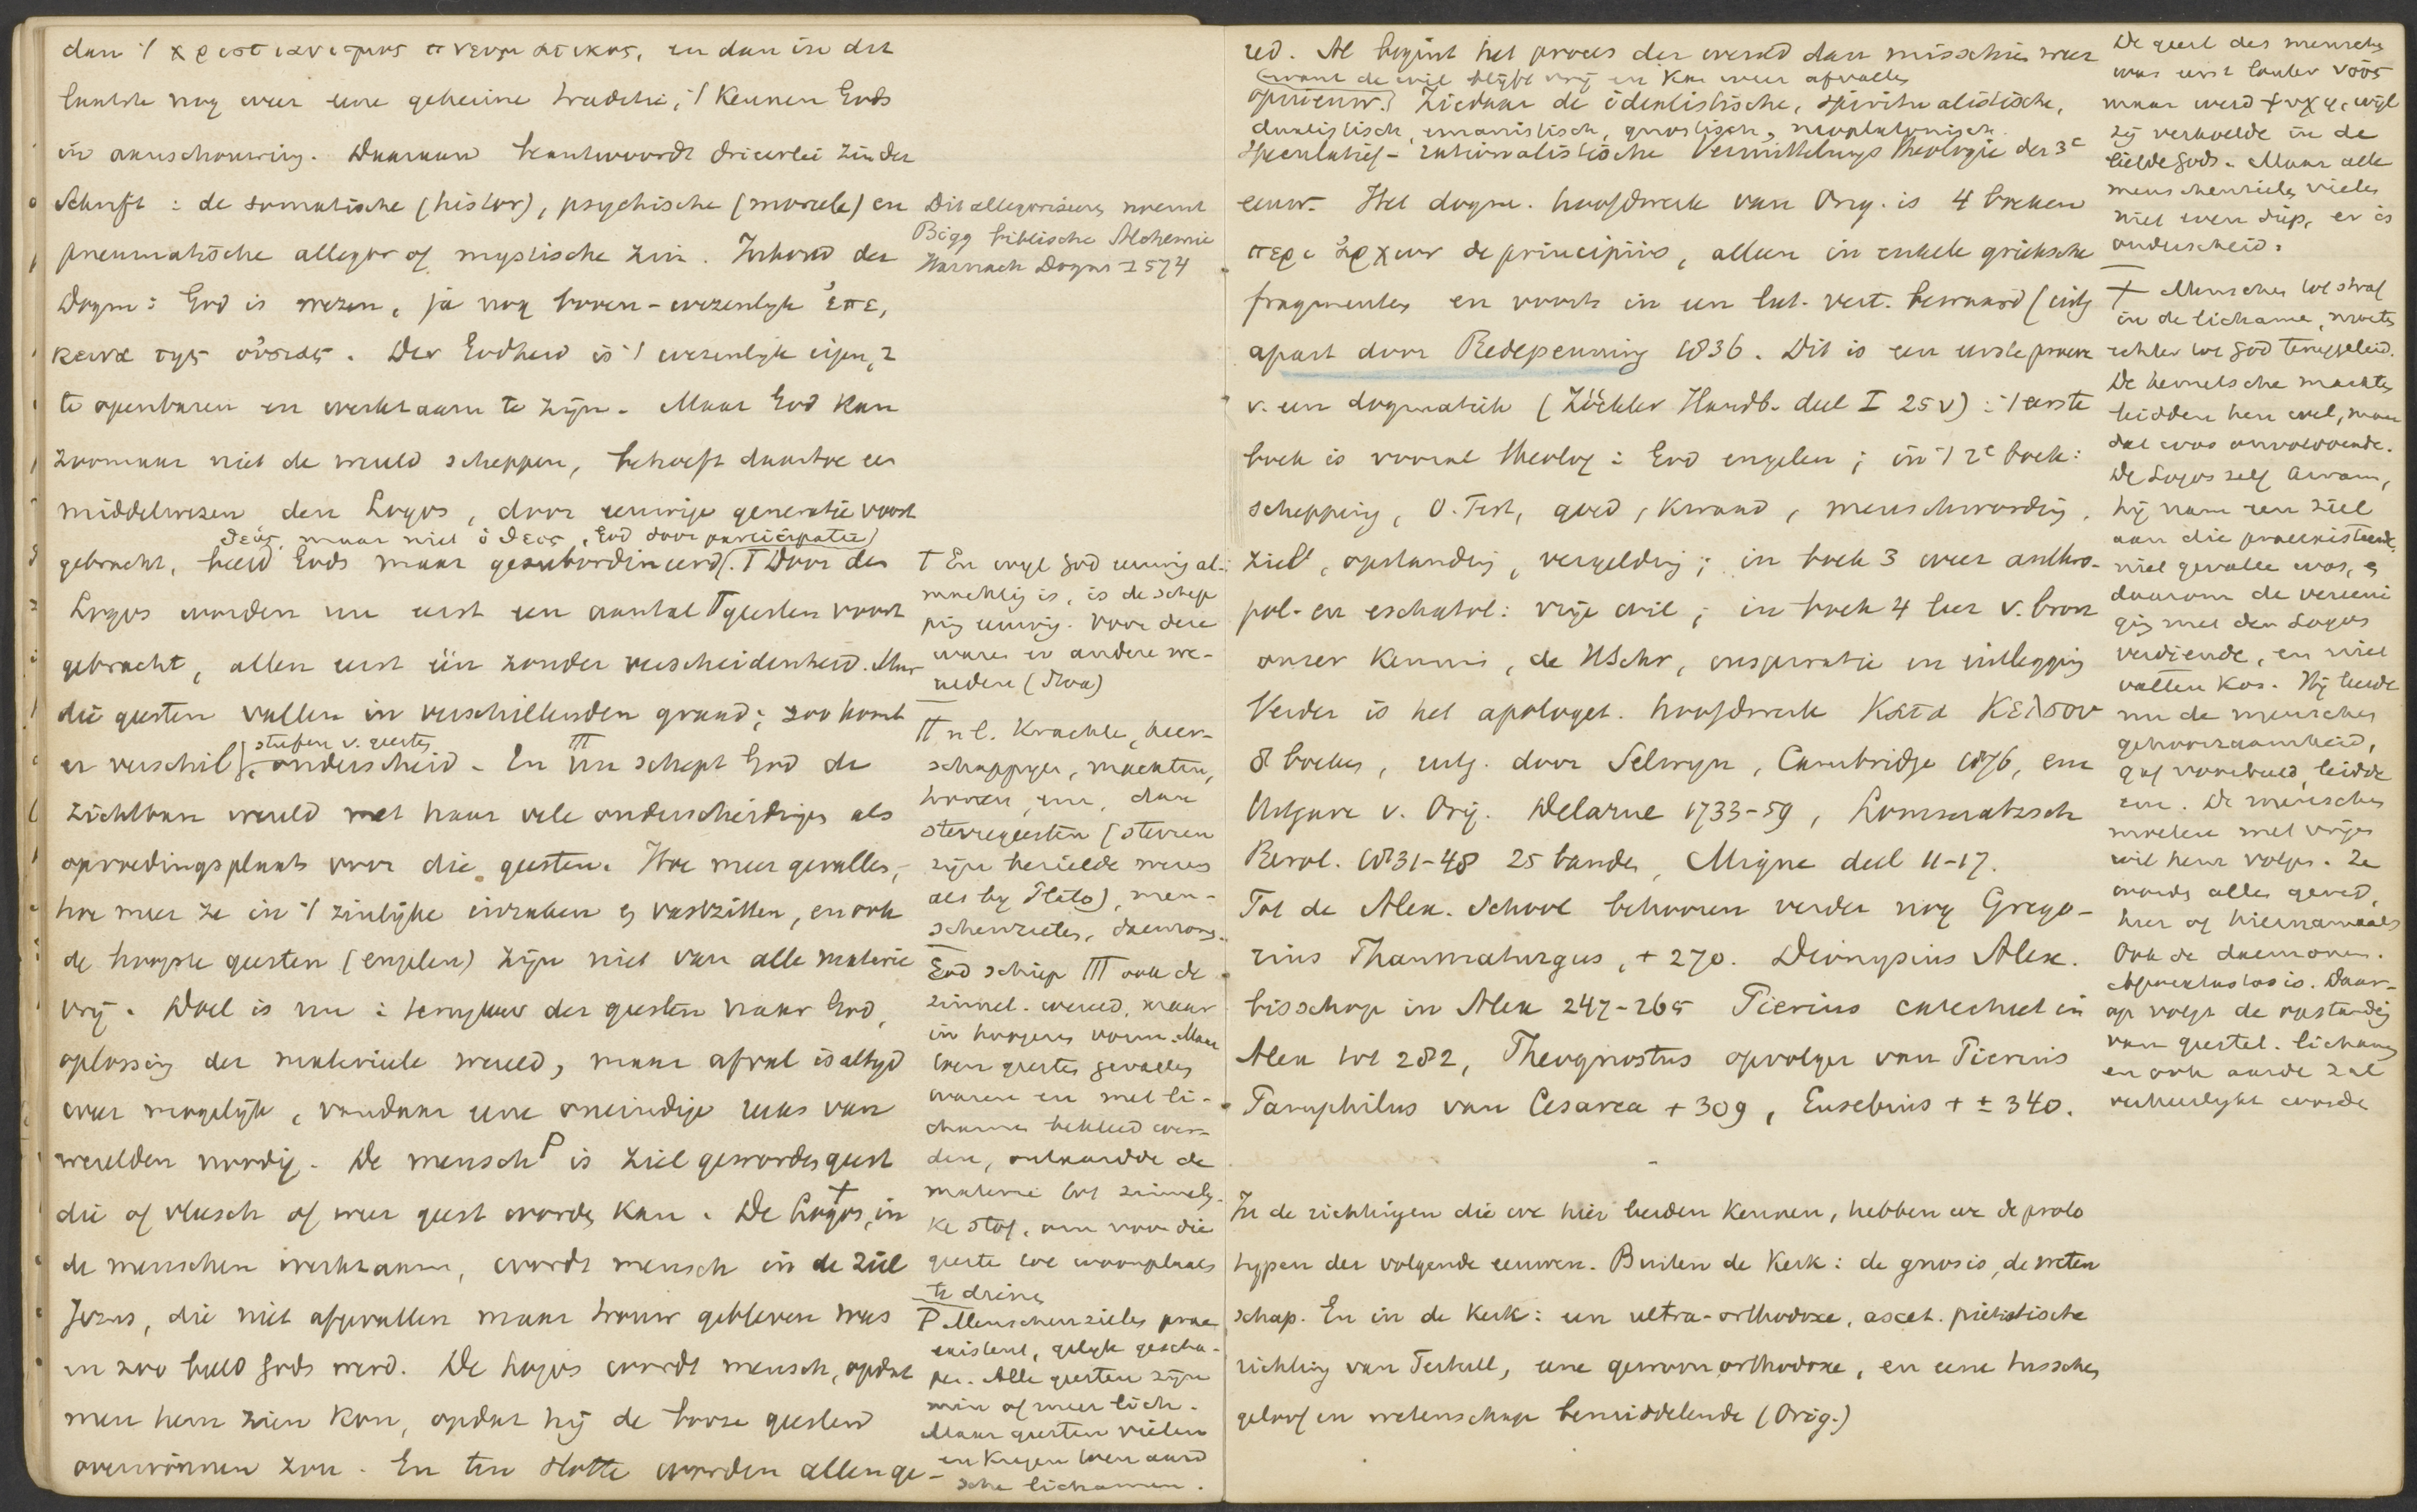 dan 't χριστιανισμος πνευματικος, en dan in dit
laatste nog weer eene geheime traditie, 't kennen Gods
in aanschouwing. Daaraan beantwoordt drieerlei zin der
Schrift : de somatische (histor), psychische (moreele) en
pneumatische allegor of mystische zin. Inhoud der
Dogm : God is wezen, ja nog boven-wezenlyk ἐπε,
κεινα της οὐσιας. Der Godheid is 't wezenlyk eigen,
te openbaren en werkzaam te zijn. Maar God kan
zoomaar niet de wereld scheppen, behoeft daartoe een
middelwezen den Logos, door eeuwige generatie voort
θεός, maar niet ὁ θεος, God door participatie)
gebracht, beeld Gods maar gesubordineerd. T Door den
Logos worden nu eerst een aantal TT geesten voort
gebracht, allen eerst één zonder verscheidenheid. Maar
die geesten vallen in verschillenden graad ; zoo komt
stufen v. geesten
er verschil, onderscheid. En nu TTT schept God de
zichtbare wereld met haar vele onderscheidingen als
opvoedingsplaats voor die geesten. Hoe meer gevallen,
hoe meer ze in 't zinlijke inzinken en vastzitten, en ook
de hoogste geesten (engelen) zijn niet van alle materie
vrij. Doel is nu : terugkeer der geesten naar God,
oplossing der materieele wereld, maar afval is altyd
weer mogelyk, vandaar eene oneindige reeks van
werelden noodig. De mensch P is ziel geworden geest
die of vleesch of weer geest worden kan. De Logos, in
de menschen werkzaam, wordt mensch in de ziel
Jezus, die niet afgevallen maar trouw gebleven was
en zoo beeld Gods werd. De Logos wordt mensch, opdat
men hem zien kon, opdat hij de booze geesten
overwinnen zou. En ten slotte worden allen ge-
Dit allegoriseeren noemt
Bigg biblische Alchemie
Harnack Dogm I 574
T En wyl God eeuwig al-
machtig is, is de schep
ping eeuwig. Voor deze
waren er andere we-
relden (Stoa)
TT nl. Krachten, heer-
schappyen, machten,
tronen, enz, dan
sterregeesten (sterren
zijn bezielde wezens
als by Plato), men-
schenzielen, daemons.
God schiep TTT ook de
zinnel. wereld, maar
in hoogeren vorm. Maar
toen geesten gevallen
waren en met li-
chamen bekleed wer-
den, ontaardde de
materie tot zinnely-
ke stof, om voor die
geesten tot woonplaats
te dienen
P Menschenzielen prae
existent, gelyk gescha-
pen. Alle geesten zijn
min of meer lich.
Maar geesten vielen
en kregen toen aard
sche lichamen.
red. Al begint het proces der wereld dan misschien weer
(want de wil blijft vrij en kan weer afvallen
opnieuw.) Ziedaar de idealistische, spiritualistische,
dualistisch, emanistisch, gnostisch, neoplatonisch.
speculatief-rationalistische Vermittelungstheologie der 3e
eeuw. Het dogm. hoofdwerk van Orig. is 4 boeken
περι ἀρχων de principiis, alleen in enkele grieksche
fragmenten en voorts in een lat. vert. bewaard (uitg
apart door Redepenning 1836. Dit is een eerste proeve
v. een dogmatiek (Zöckler Handb. deel I 25v) : 't eerste
boek is vooral theolog : God engelen ; in 't 2e boek :
schepping, O. Test, goed, kwaad, menschwording,
ziel, opstanding, vergelding ; in boek 3 weer anthro-
pol- en eschatol : vrije wil ; in boek 4 leer v. bron
onzer kennis, de HSchr, inspiratie en uitlegging
Verder is het apologet. hoofdwerk Κατα Κελσου
8 boeken, uitg. door Selwyn, Cambridge 1876, enz
Uitgave v. Orig. Delarue 1733-59, Lommatzsch
Berol. 1831-48 25 banden, Migne deel 11-17.
Tot de Alex. School behooren verder nog Grego-
rius Thaumaturgus, + 270. Dionysius Alex.
bisschop in Alex 247-265 Pierius catecheet in
Alex tot 282, Theognostus opvolger van Pierius
Pamphilus van Cesarea + 309, Eusebius + ± 340.
In de richtingen die we hier leerden kennen, hebben we de proto
typen der volgende eeuwen. Buiten de Kerk : de gnosis, de weten
schap. En in de Kerk : een ultra-orthodoxe, ascet. piëtistische
richting van Tertull, eene gewoon orthodoxe, en eene tusschen
geloof en wetenschap bemiddelende (Orig.)
De geest des menschen
was eerst louter νοῦς
maar werd ψυχη, wijl
zij verkoelde in de
liefde Gods. Maar alle
menschenzielen vielen
niet even diep, er is
onderscheid.
+ Menschen tot straf
in de lichamen, moeten
echter tot God teruggeleid.
De hemelsche machten
leidden hen wel, maar
dat was onvoldoende.
De Logos zelf kwam,
hij nam een ziel
aan die praeexisteerde,
niet gevallen was, en
daarom de vereeni
ging met den Logos
verdiende, en niet
vallen kon. Hij leerde
nu de menschen
gehoorzaamheid,
gaf voorbeeld, leidde
enz. De menschen
moeten met vrijen
wil hem volgen. Ze
worden allen gered,
hier of hiernamaals
Ook de daemonen.
Apokatastasis. Daar-
op volgt de opstanding
van geestel. lichamen
en ook aarde zal
verheerlykt worden